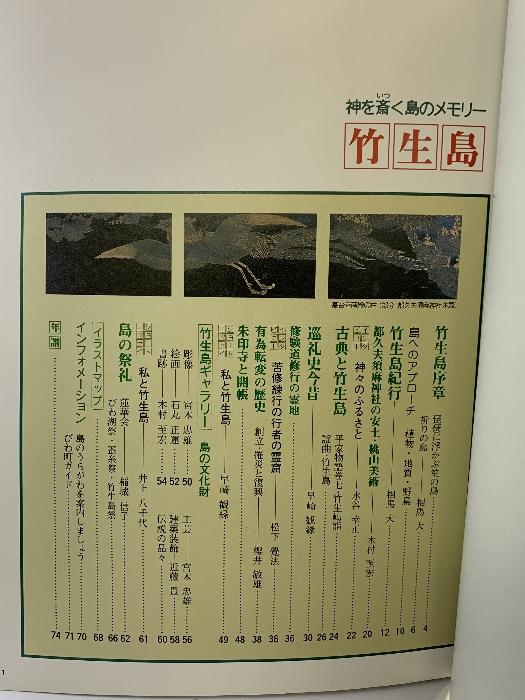 神を斎く島のメモリー
いつ
竹生島
竹生島序章
琵琶湖に浮かぶ緑の島 4
祈りの島 相馬 大 6
島へのアプローチ 植物・地質・野鳥 10
竹生島紀行 相馬 大 12
都久夫須麻神社の安土・桃山美術 木村 至宏 20
神々のふるさと 水谷 幸正 22
古典と竹生島 24
平家物語巻七・竹生島詣 26
謡曲・竹生島
巡礼史今昔 早崎 観縁 30
修験道修行の霊地 36
苦修練行の行者の霊窟 松下 覺法 36
有為転変の歴史 創立・罹災と復興 38
朱印寺と開帳 48
私と竹生島 早崎 観縁 49
竹生島ギャラリー 島の文化財
彫像 宮本 忠雄 50
絵画 石丸 正運 52
書跡 木村 至宏 54
工芸 宮本 忠雄 56
建築装飾 近藤 豊 58
伝説の品々 60
私と竹生島 井上 八千代 61
島の祭礼
蓮華会 62
びわ湖祭・三社弁才天祭・竹生島祭 66
イラストマップ 68
インフォメーション
島のうらがわを案内しましょう 70
びわ町ガイド 71
年譜 74
1